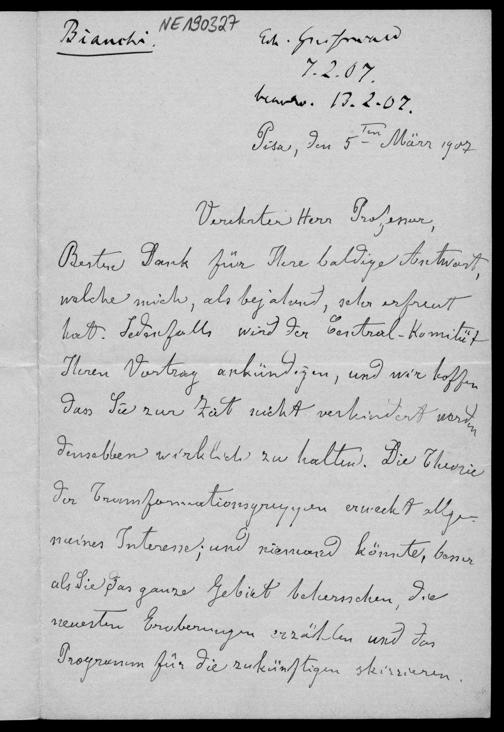 Bianchi.
NE190327
Erh. Greifswald
7.2.07.
beantw. 13.2.07.
Pisa, den 5ten März 1907
Verehrter Herr Professor,
Besten Dank für Ihre baldige Antwort,
welche mich, als bejahend, sehr erfreut
hat. Jedenfalls wird der Central-Komität
Ihren Vortrag ankündigen, und wir hoffen
dass Sie zur Zeit nicht verhindert werden
denselben wirklich zu halten. Die Theorie
der Transformationsgruppen erweckt allge-
meines Interesse; und niemand könnte, besser
als Sie das ganze Gebiet beherrschen, die
neuesten Eroberungen erzählen und das
Programm für die zukünftigen skizzieren.